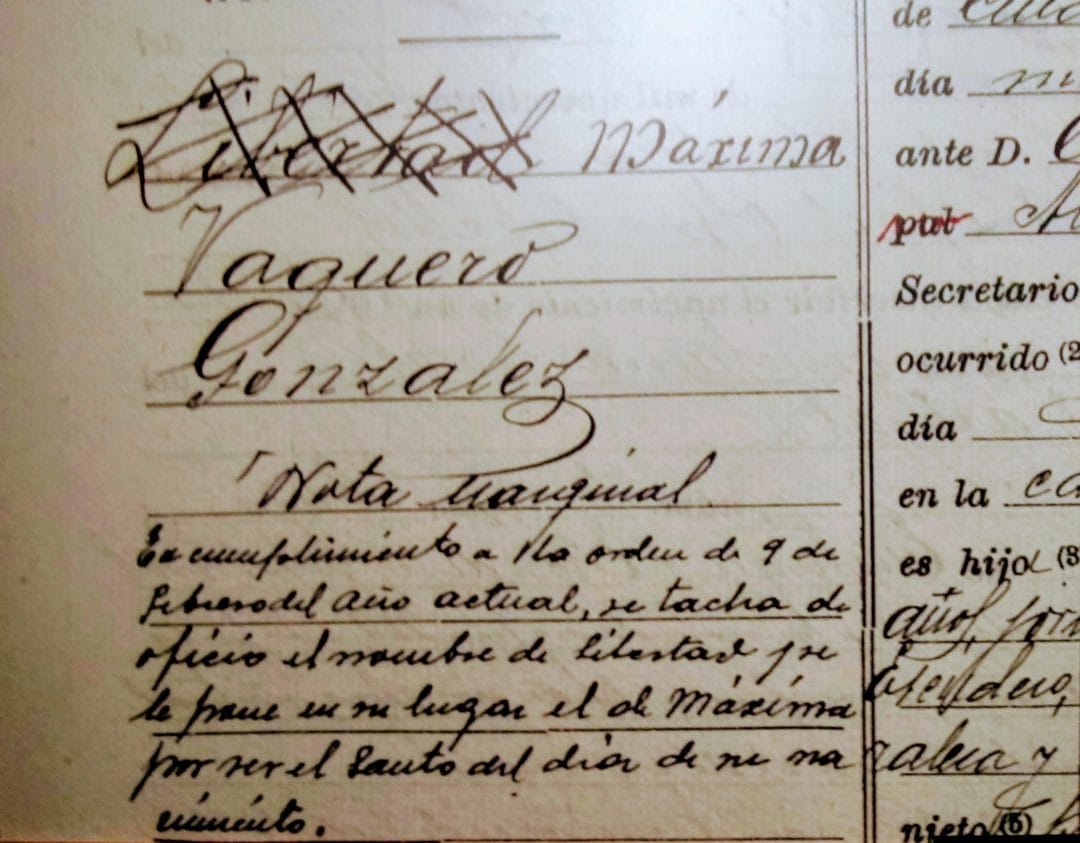 Libertad Máxima
Vaquero
González
Nota Marginal
En cumplimiento a la orden de 9 de
febrero del año actual, se tacha de
oficio el nombre de libertad y se
le pone en su lugar el de Máxima
por ser el Santo del día de su na
cimiento.
de
día
ante D.
pub
Secretario
ocurrido (2
día
en la ca
es hijo (3
nieto (5)